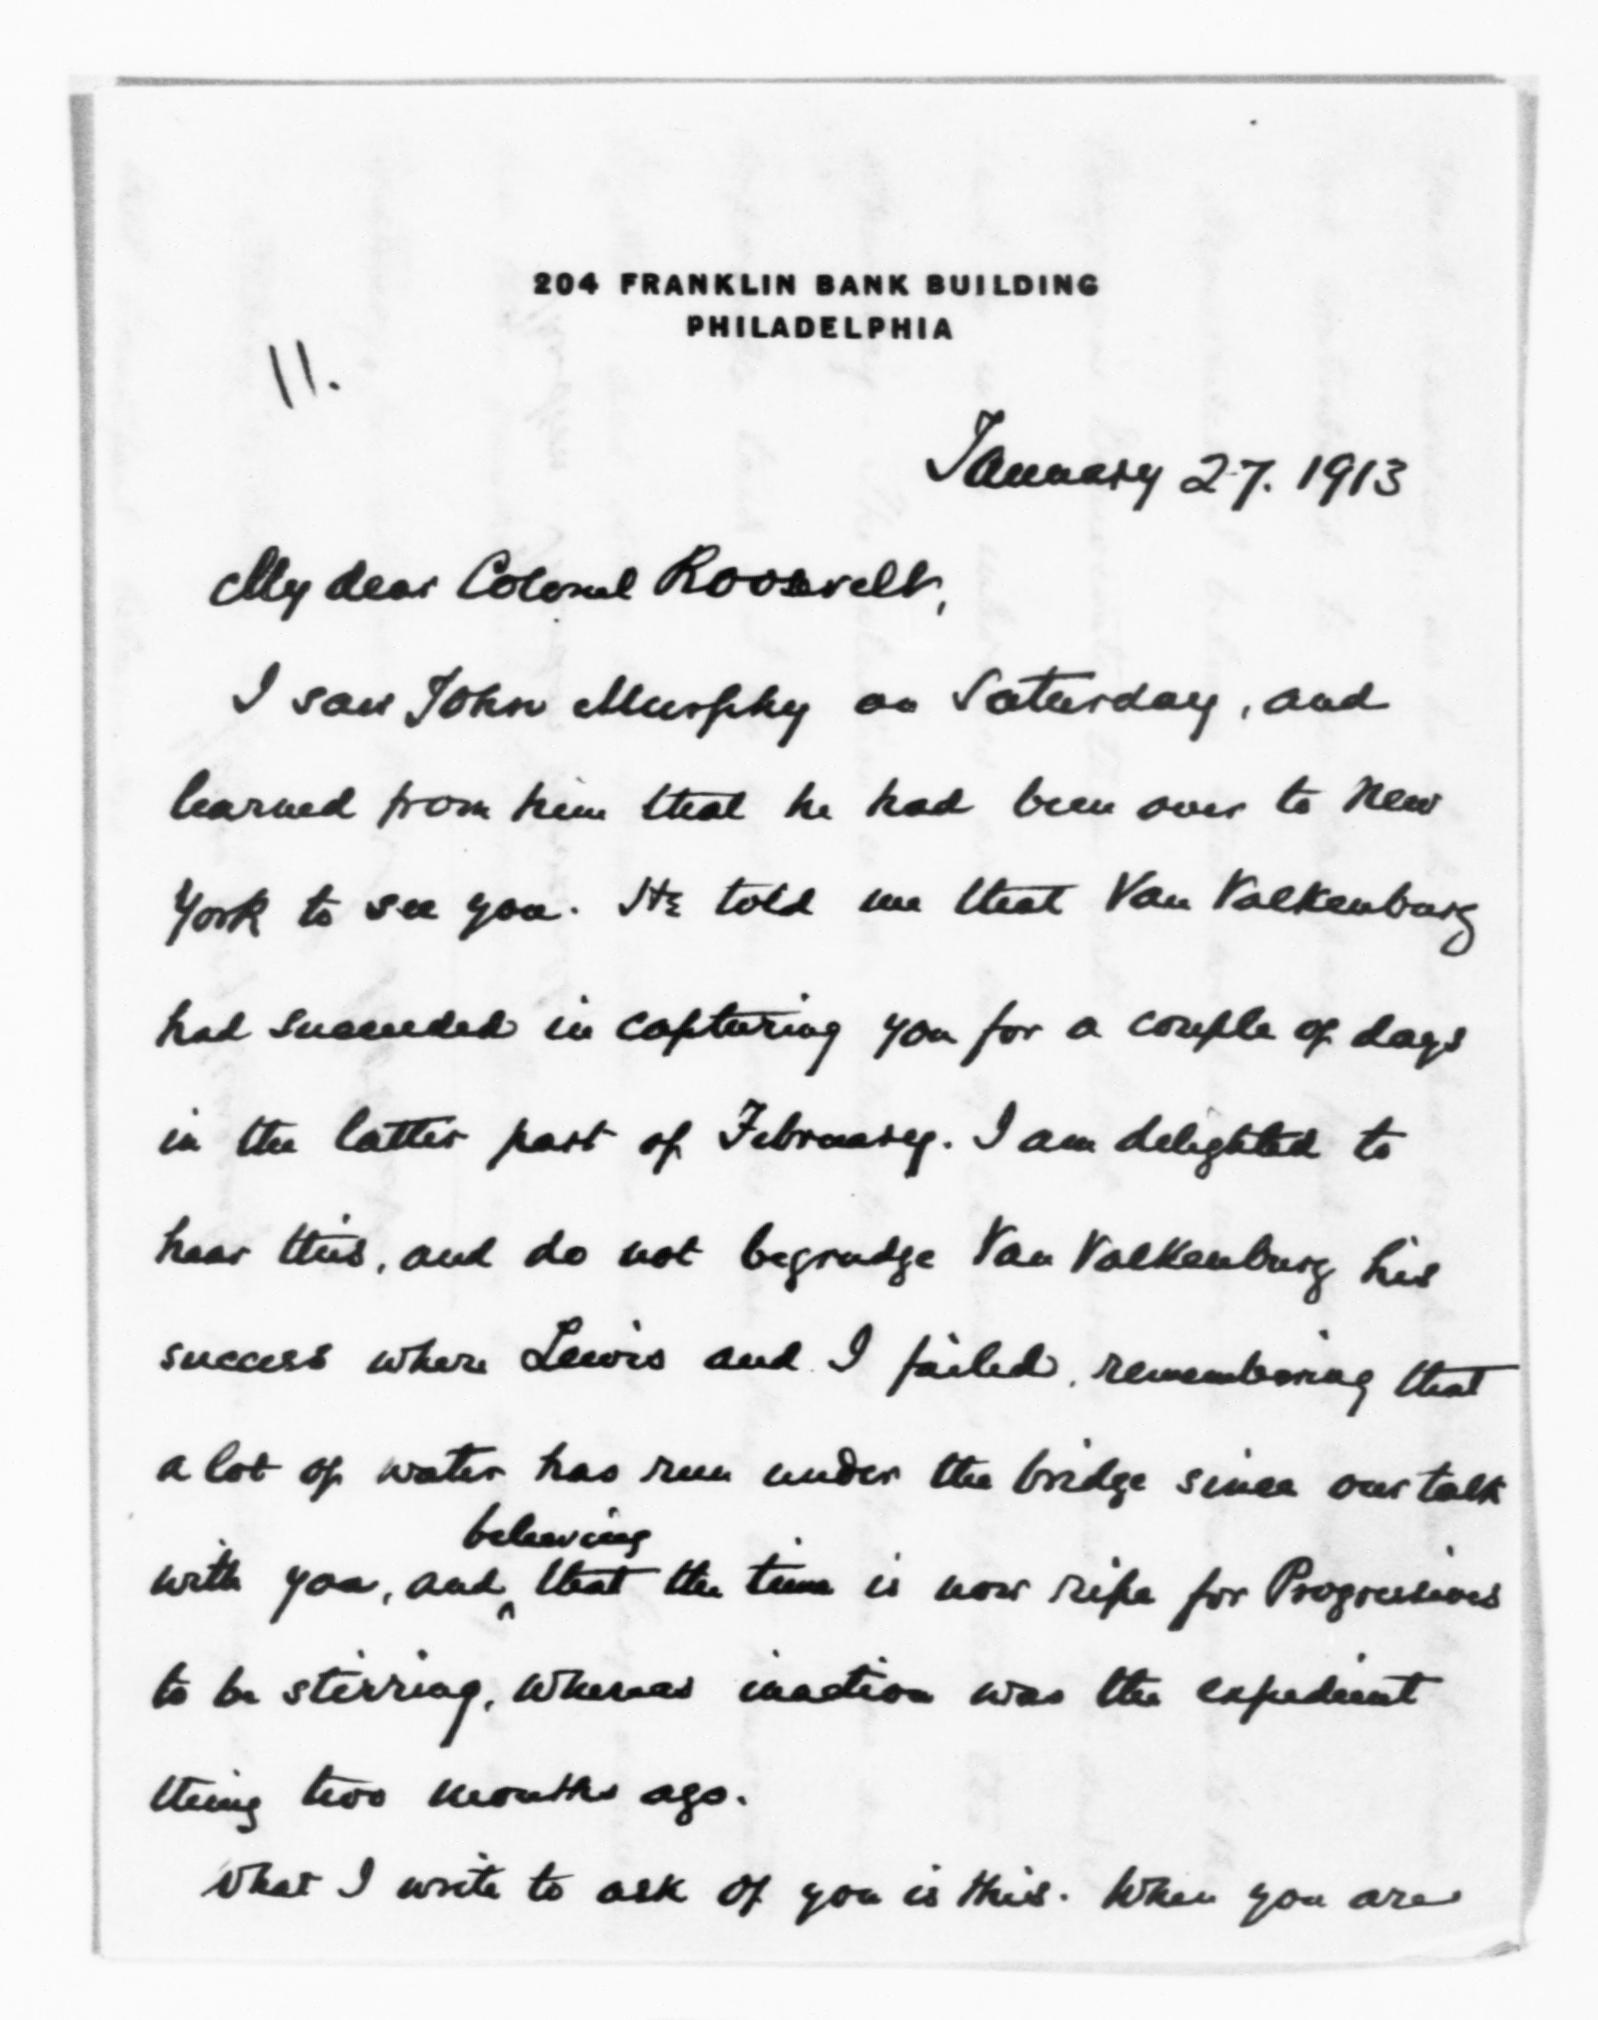 204 FRANKLIN BANK BUILDING
PHILADELPHIA
11.
January 27. 1913
My dear Colonel Roosevelt,
I saw John Murphy on Saturday, and
learned from him that he had been over to New
York to see you. He told me that Van Valkenburg
had succeeded in capturing you for a couple of days
in the latter part of February. I am delighted to
hear this, and do not begrudge Van Valkenburg his
success where Lewis and I failed, remembering that
a lot of water has run under the bridge since our talk
believing
with you, and ‸ that the time is now ripe for Progressives
to be stirring, whereas inaction was the expedient
thing two months ago.
What I write to ask of you is this. When you are